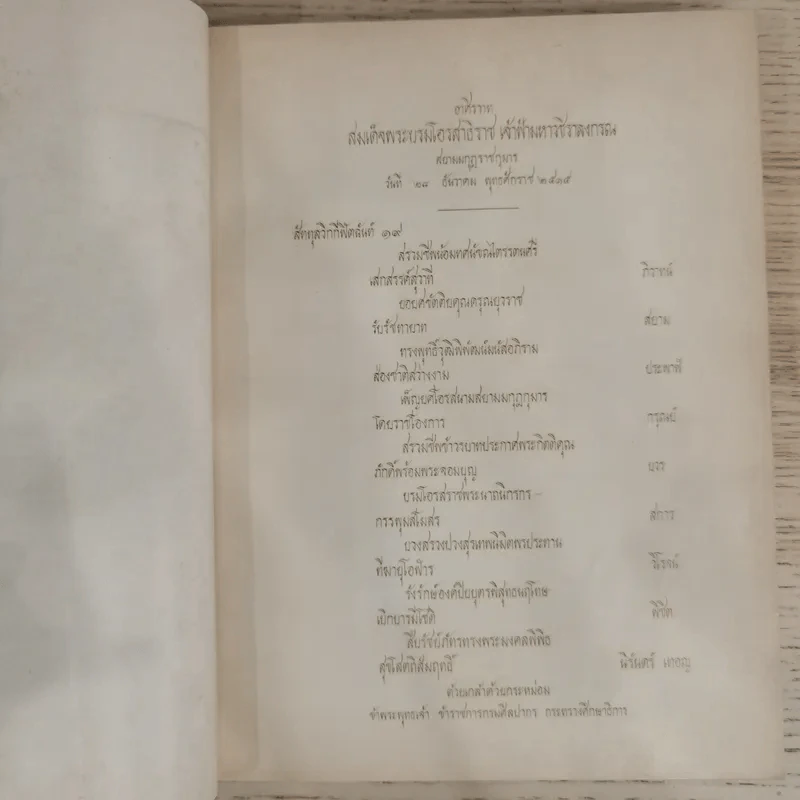 อาศิรวาท
สมเด็จพระบรมโอรสาธิราช เจ้าฟ้ามหาวชิราลงกรณ
สยามมกุฎราชกุมาร
วันที่ ๒๘ ธันวาคม พุทธศักราช ๒๕๑๕
สัททุลวิกกีฬิตฉันท์ ๑๙
สรวมชีพน้อมทศนัขฉไตรรตนศรี
เสกสรรค์สุวาที ภิราทน์
ยอยศขัตติยคุณดรุณยุวราช
รับรัชทายาท สยาม
ทรงพุทธิ์วุฒิพิพัฒน์มนัสอภิราม
ส่องชาติสว่างงาม ประพาฬ
เพ็ญยศโอรสนามสยามมกุฎกุมาร
โดยราชโองการ กรุณย์
สรวมชีพข้าวรบาทประกาศพระกิตติคุณ
ภักดิ์พร้อมพระจอมบุญ บวร
บรมโอรสราชพระนาถนิกรกร –
กรรพุมสโมสร สการ
บวงสรวงปวงสุรเทพนิมิตพรประทาน
ทีฆายุโอฬาร วิโรจน์
รังรักษ์องค์ปิยบุตรพิสุทธนฤโทษ
เบิกบารมีโชติ พิชิต
สืบรัชย์ภัทรทรงพระมงคลพิพิธ
สุขโสตถิสัมฤทธิ์ นิรันดร์ เทอญ
ด้วยเกล้าด้วยกระหม่อม
ข้าพระพุทธเจ้า ข้าราชการกรมศิลปากร กระทรวงศึกษาธิการ